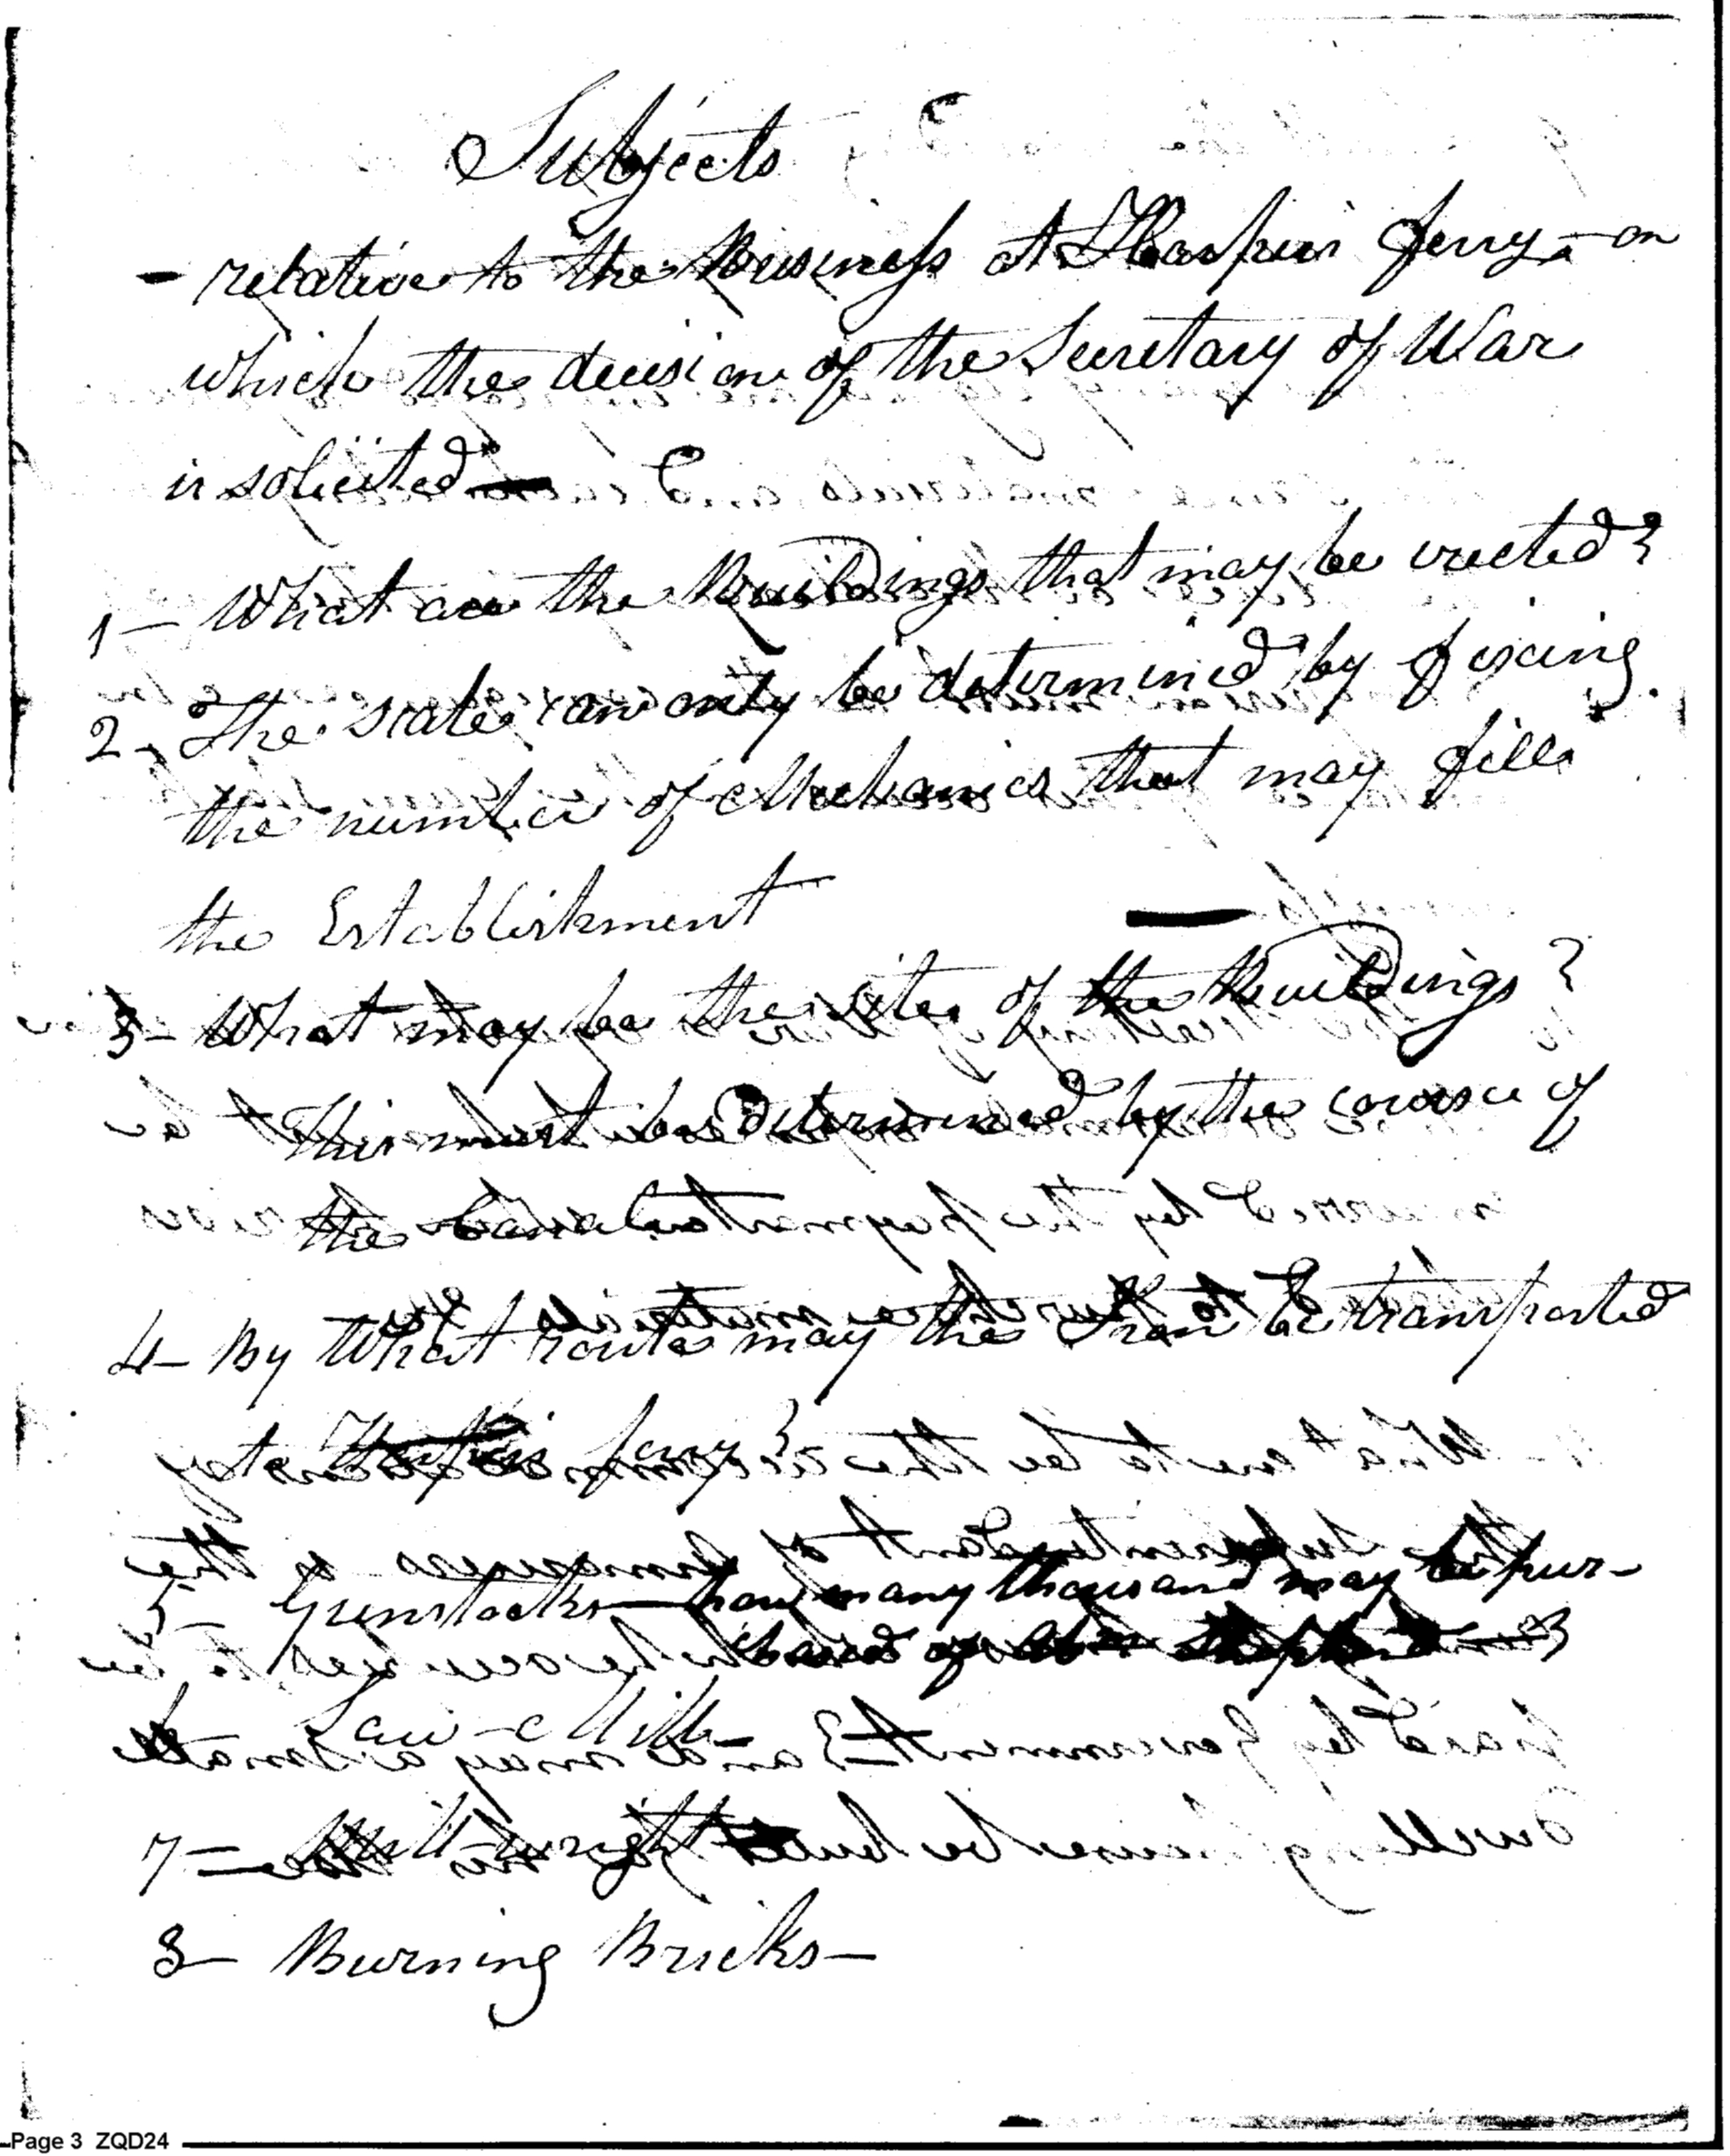 Subjects
- relative to the Business at Harpers ferry - on
which the decision of the Secretary of War
is solicited -
1 - What are the Buildings that may be erected?
2. The scale can only be determined by fixing
the number of Mechanics that may fill
the Establishment
3 - What may be the sites of the Buildings?
This must be determined by the course of
the Canal
4 - By What route may the Iron be transported
to Harpers ferry?
5 - Gunstocks - how many thousand may be pur-
chased of
6 - Saw-Mill -
7 - Mill-wright
8 - Burning Bricks -
Page 3 ZQD24